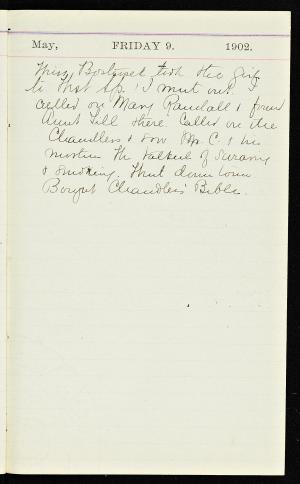 May, FRIDAY 9. 1902.
Miss Bostwick took the girls
to West Sp. I went out. I
called on Mary Randall & found
Aunt Till there. Called on the
Chandlers & saw Mr. C. & his
mother. He talked of
& smoking. Went down town
Bought Chandlers' Bible.